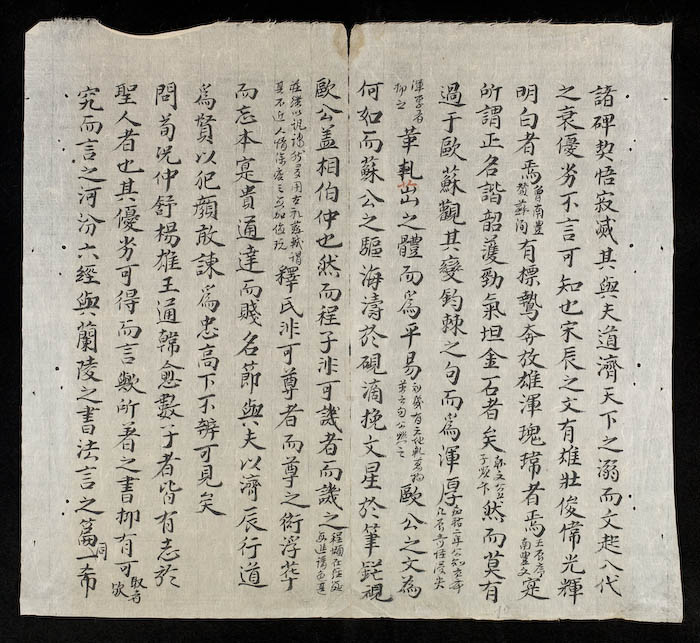 諸碑契悟寂滅其與夫道濟天下之溺而文起八代
之衰優劣不言可知也宋辰之文有雄壯俊偉光輝
明白者焉曾南豊贊蘇洵有標鷙奔放雄渾瑰瑋者焉南豊文寔
所謂正名諧韶頀勁氣坦金石者矣然而莫有
過于歐蘇觀其變鈎棘之句而爲渾厚嘉祐二年公知貢舉
渾厚者抑之革軋茁之體而爲平易初幾有天地軋萬物茁之句公黜之歐公之文爲
何如而蘇公之驅海濤於硯滴挽文星於筆鋩視
歐公盖相伯仲也然而程子非可譏者而譏之程頥在經筵
釋氏非可尊者而尊之衒浮華
而忘本寔貴通達而賤名節與夫以濟辰行道
爲賢以犯顔敢諫爲忠高下不辨可見矣
問荀况仲舒楊雄王通韓愈數子者皆有志於
聖人者也其優劣可得而言歟所著之書抑有可取者歟
究而言之河汾六經與蘭陵之書法言之篇同希